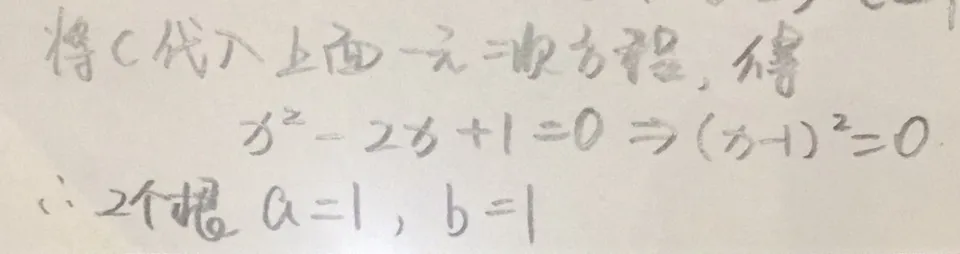 将C代入上面一元二次方程，得
x² - 2x + 1 = 0 ⇒ (x-1)² = 0.
∴ 2个根 a = 1, b = 1